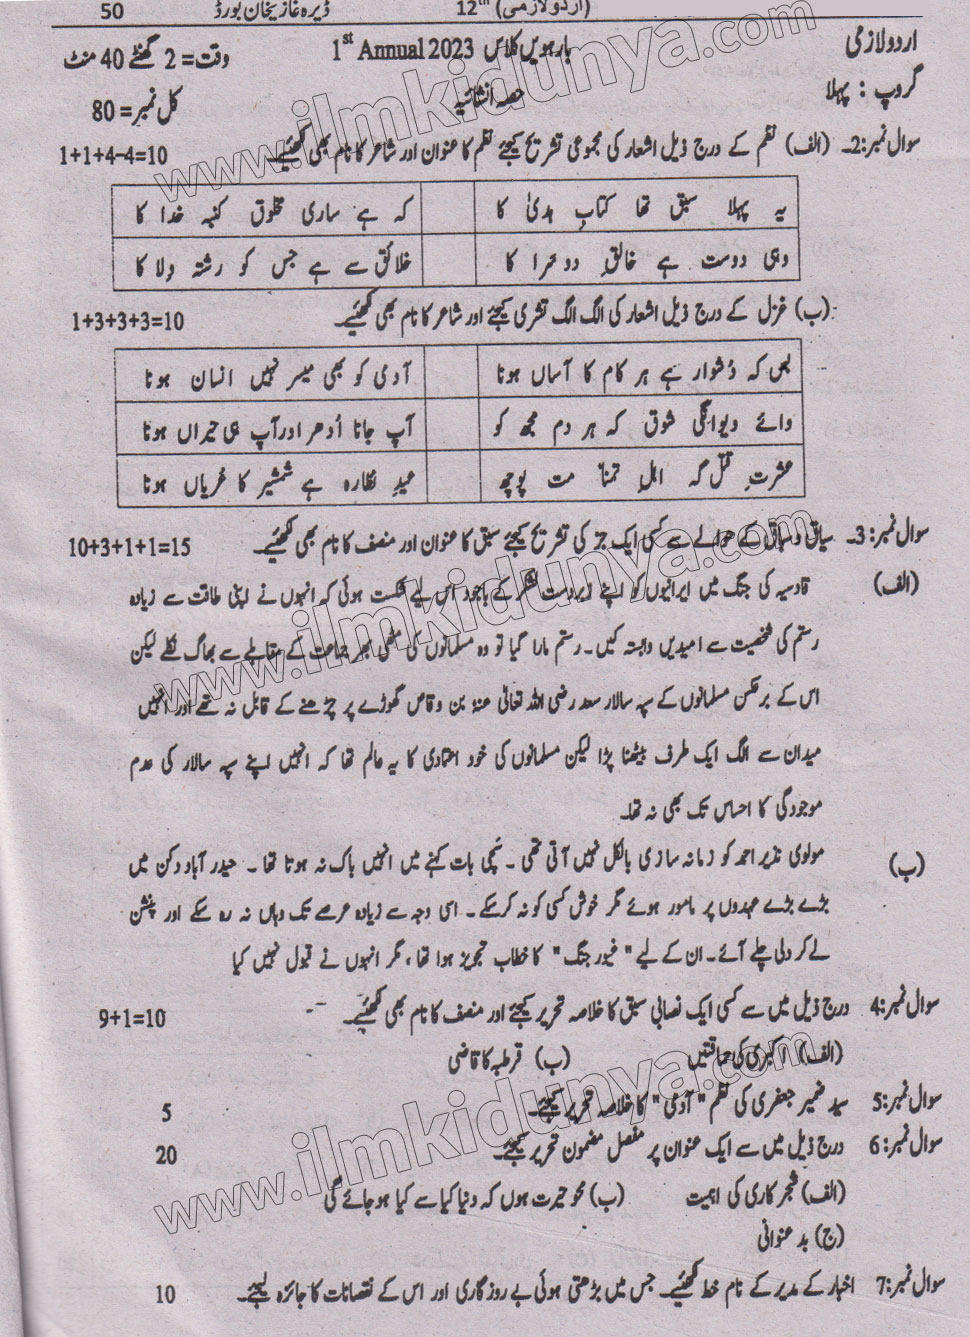 50 ڈیرہ غازیخان بورڈ 12th (اردو لازمی)
اردو لازمی بارہویں کلاس 1st Annual 2023 وقت = 2 گھنٹے 40 منٹ
گروپ : پہلا حصہ انشائیہ کل نمبر = 80
سوال نمبر:2۔ (الف) نظم کے درج ذیل اشعار کی مجموعی تشریح کیجئے نظم کا عنوان اور شاعر کا نام بھی لکھئیے۔ 1+1+4-4=10
یہ پہلا سبق تھا کتاب ہدیٰ کا کہ ہے ساری مخلوق کنبہ خدا کا
وہی دوست ہے خالقِ دوسرا کا خلائق سے ہے جس کو رشتہ ولا کا
(ب) غزل کے درج ذیل اشعار کی الگ الگ تشریح کیجئے اور شاعر کا نام بھی لکھئیے۔ 1+3+3+3=10
بس کہ دُشوار ہے ہر کام کا آساں ہونا آدمی کو بھی میسر نہیں انساں ہونا
وائے دیوانگی شوق کہ ہر دم مجھ کو آپ جانا اُدھر اور آپ ہی حیراں ہونا
عشرتِ قتل گہ اہلِ تمنا مت پوچھ عیدِ نظارہ ہے شمشیر کا عُریاں ہونا
سوال نمبر:3۔ سیاق و سباق کے حوالے سے کسی ایک جز کی تشریح کیجئے سبق کا عنوان اور منصف کا نام بھی لکھئیے۔ 10+3+1+1=15
(الف) قادسیہ کی جنگ میں ایرانیوں کو اپنے زبردست لشکر کے باجود اس لیے شکست ہوئی کہ انہوں نے اپنی طاقت سے زیادہ
رستم کی شخصیت سے امیدیں وابستہ کیں۔ رستم مارا گیا تو وہ مسلمانوں کی مٹھی بھر جماعت کے مقابلے سے بھاگ نکلے لیکن
اس کے برعکس مسلمانوں کے سپہ سالار سعد رضی اللہ تعالیٰ عنہٗ بن وقاص گھوڑے پر چڑھنے کے قابل نہ تھے اور انہیں
میدان سے الگ ایک طرف بیٹھنا پڑا لیکن مسلمانوں کی خود اعتمادی کا یہ عالم تھا کہ انہیں اپنے سپہ سالار کی عدم
موجودگی کا احساس تک بھی نہ تھا۔
(ب) مولوی نذیر احمد کو زمانہ سازی بالکل نہیں آتی تھی ۔ سچی بات کہنے میں انہیں باک نہ ہوتا تھا ۔ حیدر آباد دکن میں
بڑے بڑے عہدوں پر مامور ہوئے مگر خوش کسی کو نہ کرسکے۔ اسی وجہ سے زیادہ عرصے تک وہاں نہ رہ سکے اور پنشن
لے کر دلی چلے آئے۔ ان کے لیے " غیور جنگ " کا خطاب تجویز ہوا تھا ، مگر انہوں نے قبول نہیں کیا
سوال نمبر:4 درج ذیل میں سے کسی ایک نصابی سبق کا خلاصہ تحریر کیجئے اور منصف کا نام بھی لکھئیے۔ 9+1=10
(الف) اکبری کی حماقتیں (ب) قرطبہ کا قاضی
سوال نمبر:5 سید ضمیر جعفری کی نظم " آدمی" کا خلاصہ تحریر کیجئے۔ 5
سوال نمبر:6 درج ذیل میں سے ایک عنوان پر مفصل مضمون تحریر کیجئے۔ 20
(الف) شجر کاری کی اہمیت (ب) محو حیرت ہوں کہ دنیا کیا سے کیا ہو جائے گی
(ج) بدعنوانی
سوال نمبر:7 اخبار کے مدیر کے نام خط لکھئیے۔ جس میں بڑھتی ہوئی بے روزگاری اور اس کے نقصانات کا جائزہ لیجئے۔ 10
www.ilmkidunya.com
www.ilmkidunya.com
www.ilmkidunya.com